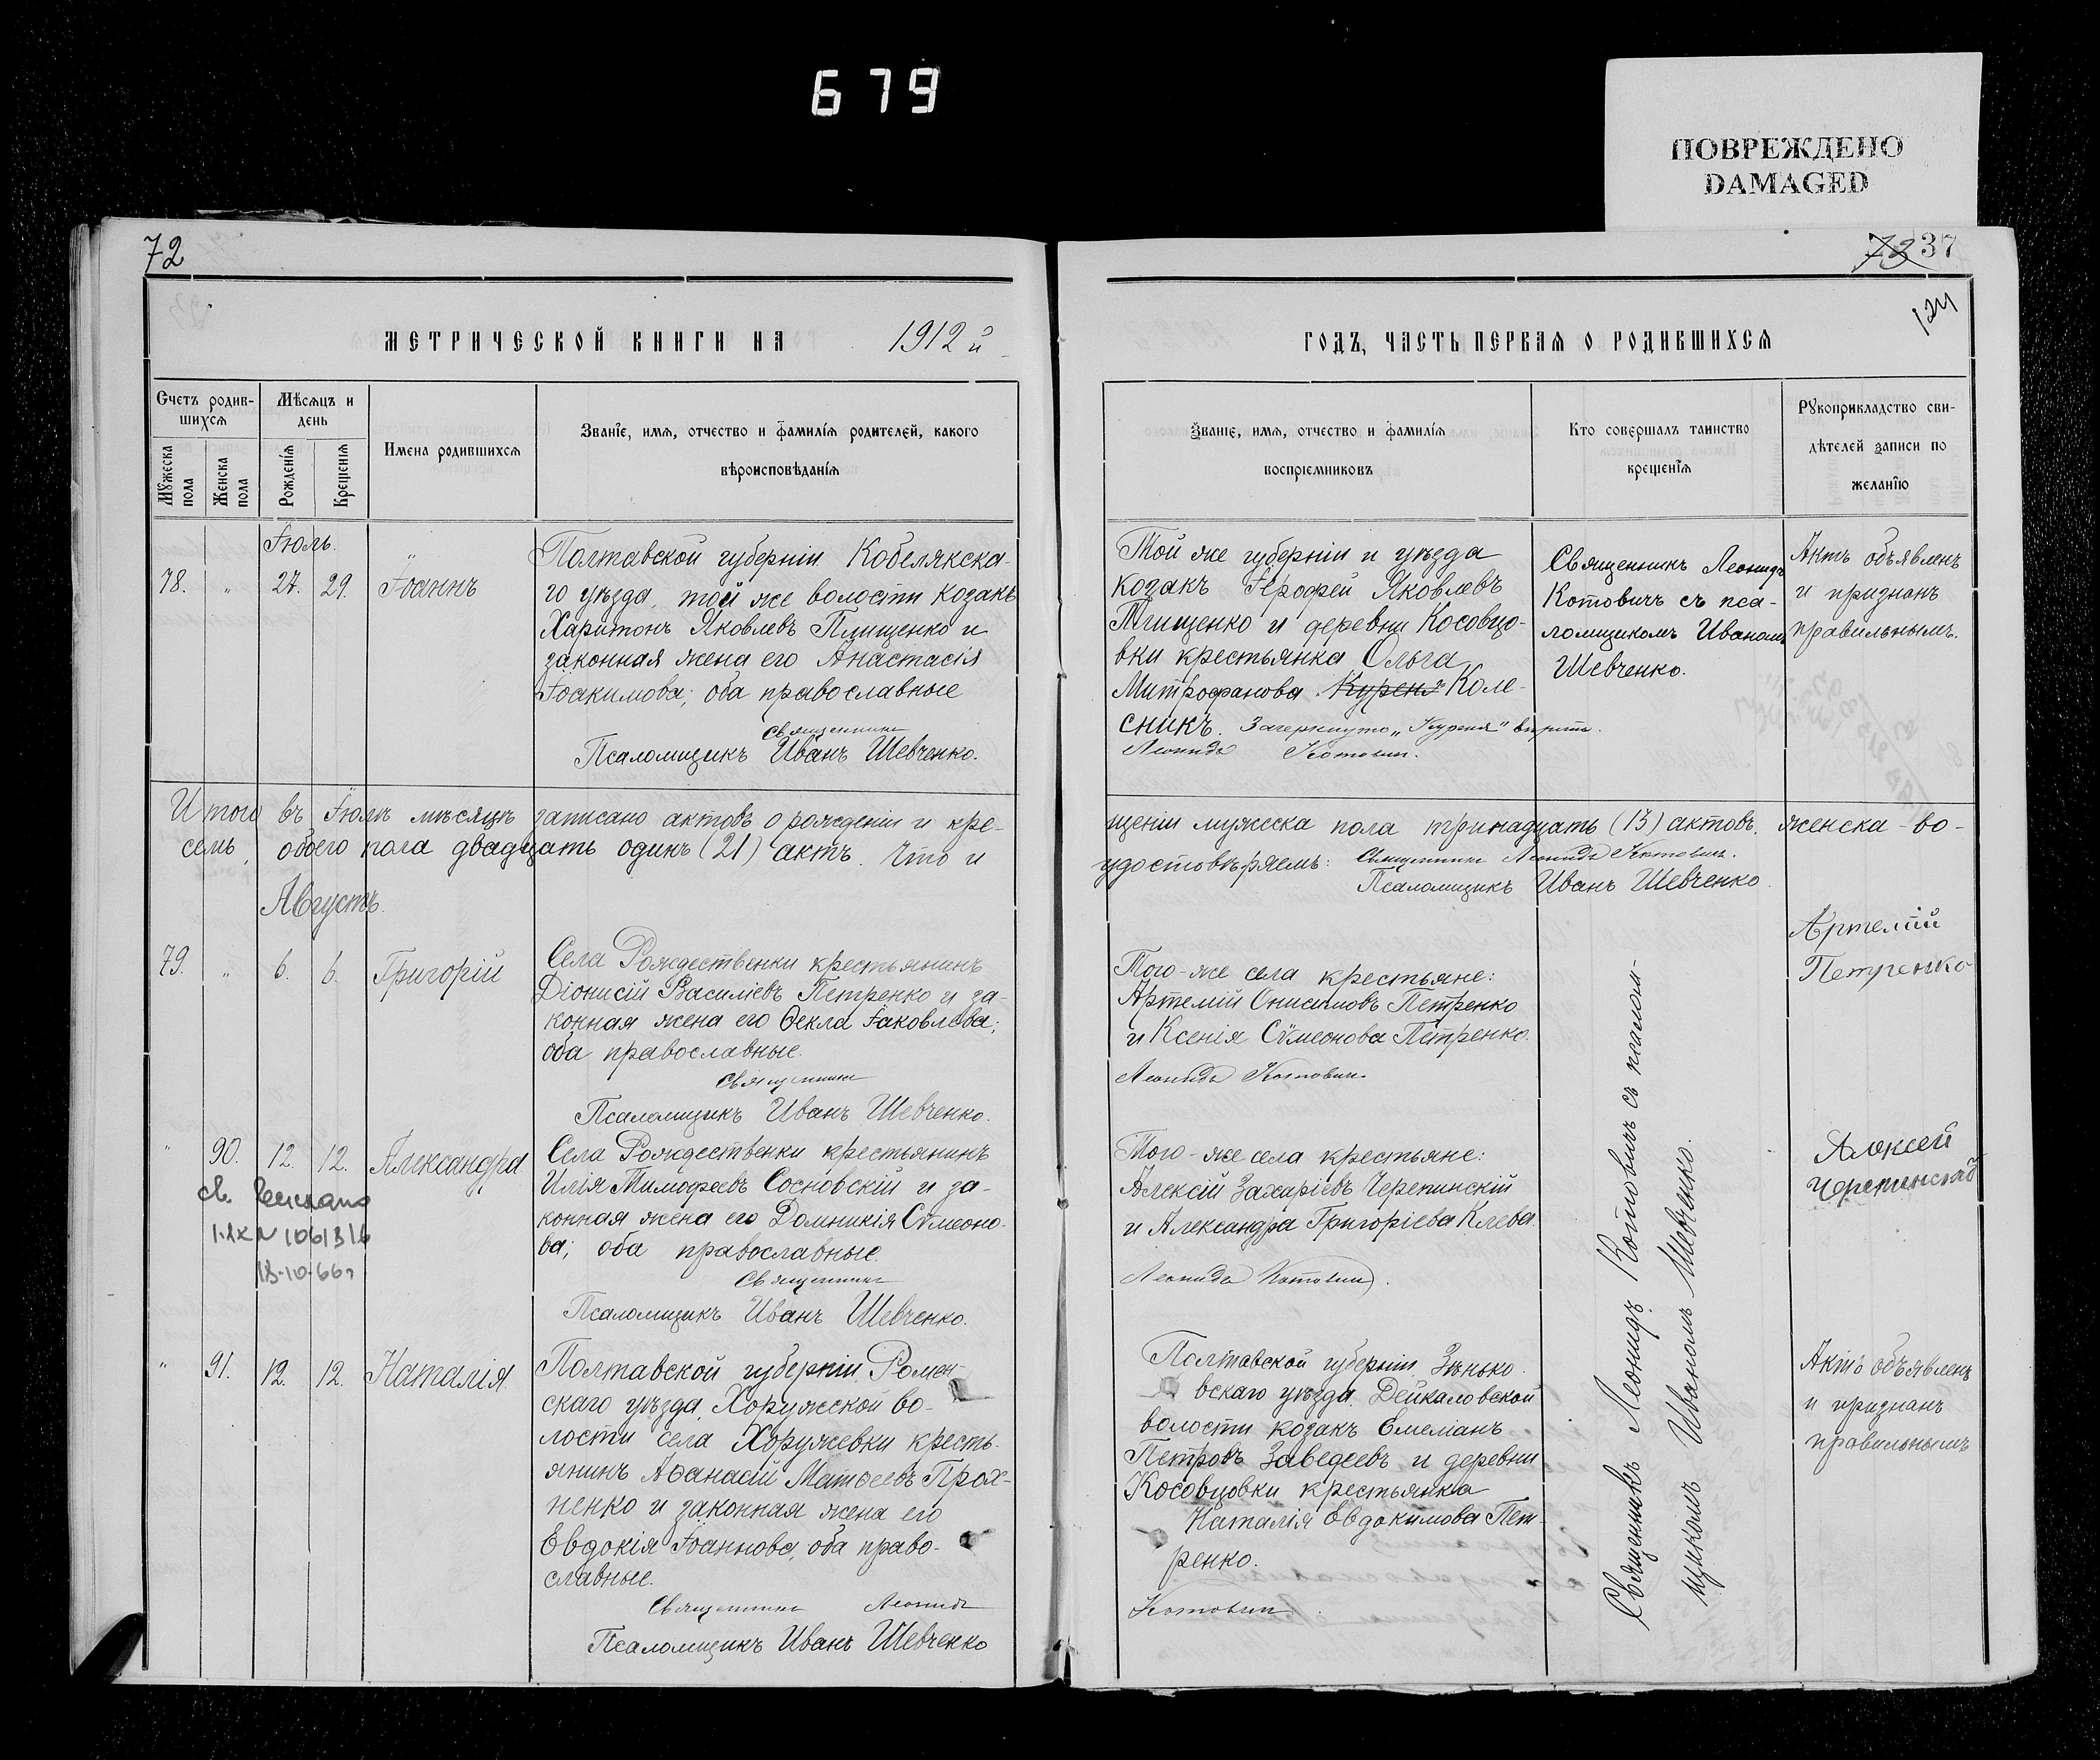 679
ПОВРЕЖДЕНО
DAMAGED
72
73 37
124
МЕТРИЧЕСКОЙ КНИГИ НА 1912 й
ГОДЪ, ЧАСТЬ ПЕРВАЯ О РОДИВШИХСЯ
Счетъ родив-
шихся
Мужеска пола
Женска пола
Мѣсяцъ и
день
Рожденія
Крещенія
Имена родившихся
Званіе, имя, отчество и фамилія родителей, какого
вѣроисповѣданія
Званіе, имя, отчество и фамилія
воспріемниковъ
Кто совершалъ таинство
крещенія
Рукоприкладство сви-
дѣтелей записи по
желанію
Іюль.
78. " 27. 29. Іоаннъ
Полтавской губерніи Кобелякска-
го уѣзда, той же волости козакъ
Харитонъ Яковлевъ Плищенко и
законная жена его Анастасія
Іоакимова; оба православные
Священникъ
Псаломщикъ Иванъ Шевченко.
Той же губерніи и уѣзда
козакъ Іерофей Яковлевъ
Плищенко и деревни Косовцо-
вки крестьянка Ольга
Митрофанова Куреня Коле-
сникъ. Зачеркнуто „Куреня" вѣрить.
Леонидъ Котовичъ.
Священникъ Леонидъ
Котовичъ съ пса-
ломщикомъ Иваномъ
Шевченко.
Актъ объявленъ
и признанъ
правильнымъ.
Итого въ Іюлѣ мѣсяцѣ записано актовъ о рожденіи и кре-
щеніи мужеска пола тринадцать (13) актовъ, женска - во-
семь, обоего пола двадцать одинъ (21) актъ. Что и
удостовѣряемъ: Священникъ Леонидъ Котовичъ.
Псаломщикъ Иванъ Шевченко.
Августъ.
79. " 6. 6. Григорій
Села Рождественки крестьянинъ
Діонисій Василіевъ Петренко и за-
конная жена его Ѳекла Іаковлева;
оба православные.
Священникъ
Псаломщикъ Иванъ Шевченко.
Того-же села крестьяне:
Артемій Онисимовъ Петренко
и Ксенія Сѵмеонова Петренко.
Леонидъ Котовичъ
Артемій
Петренко
" 90. 12. 12. Александра
18-10-66г
Села Рождественки крестьянинъ
Илія Тимофеевъ Сосновскій и за-
конная жена его Домникія Сѵмеоно-
ва; оба православные.
Священникъ
Псаломщикъ Иванъ Шевченко.
Того-же села крестьяне:
Алексій Захаріевъ Черепинскій
и Александра Григоріева Клева.
Леонидъ Котовичъ.
Алексей
" 91. 12. 12. Наталія.
Полтавской губерніи, Ромен-
скаго уѣзда, Хоружской во-
лости села Хоружевки кресть-
янинъ Аѳанасій Матѳеевъ Прох-
ненко и законная жена его
Евдокія Іоаннова, оба право-
славные.
Священникъ Леонидъ
Псаломщикъ Иванъ Шевченко
Полтавской губерніи, Зѣнько-
вскаго уѣзда, Дейкаловской
волости козакъ Емеліанъ
Петровъ Заведеевъ и деревни
Косовцовки крестьянка
Наталія Евдокимова Пет-
ренко.
Котовичъ.
Священникъ Леонидъ Котовичъ съ псалом-
щикомъ Иваномъ Шевченко.
Актъ объявленъ
и признанъ
правильнымъ